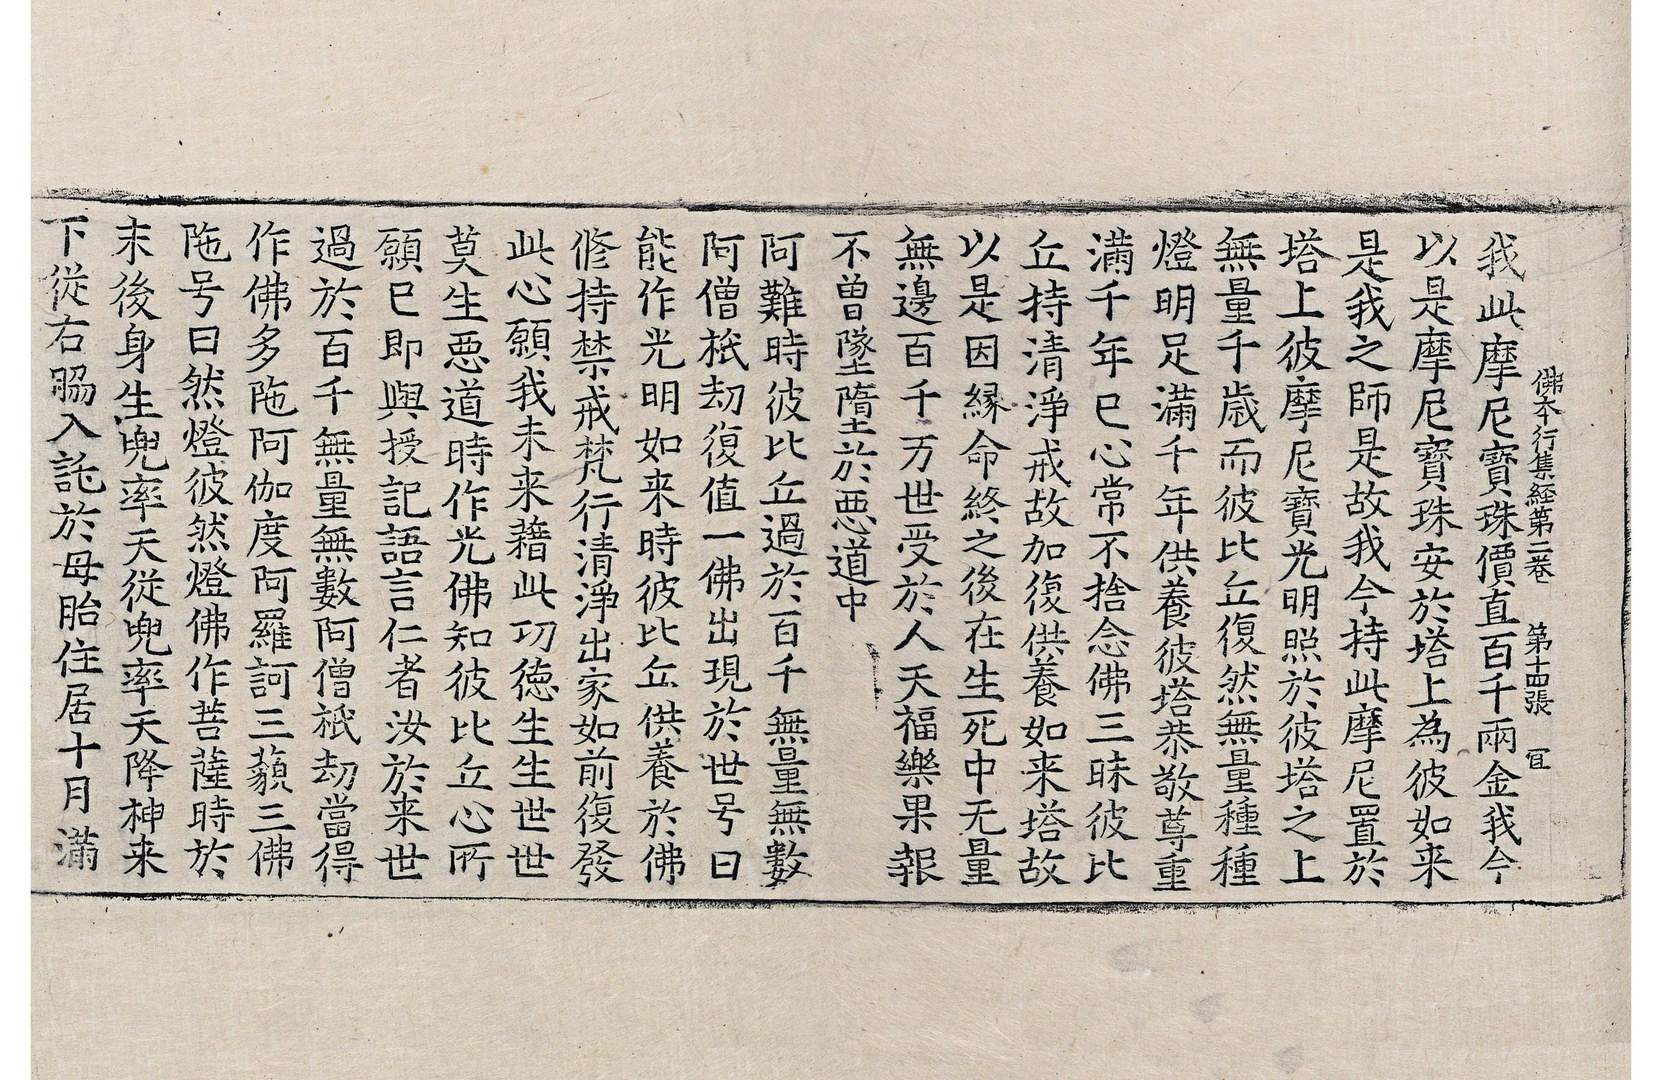 佛本行集経第二卷 第十四張 冝
我此摩尼寶珠價直百千兩金我今
以是摩尼寶珠安於塔上為彼如来
是我之師是故我今持此摩尼置於
塔上彼摩尼寶光明照於彼塔之上
無量千歲而彼比丘復然無量種種
燈明足滿千年供養彼塔恭敬尊重
滿千年已心常不捨念佛三昧彼比
丘持清淨戒故加復供養如来塔故
以是因縁命終之後在生死中无量
無邊百千万世受於人天福樂果報
不曽墜墮於惡道中
阿難時彼比丘過於百千無量無數
阿僧祇劫復值一佛出現於世号曰
能作光明如来時彼比丘供養於佛
修持禁戒梵行清淨出家如前復發
此心願我未来藉此功徳生生世世
莫生惡道時作光佛知彼比丘心所
願已即與授記語言仁者汝於来世
過於百千無量無數阿僧祇劫當得
作佛多陁阿伽度阿羅訶三藐三佛
陁号曰然燈彼然燈佛作菩薩時於
末後身生兜率天從兜率天降神来
下從右脇入託於母胎住居十月滿